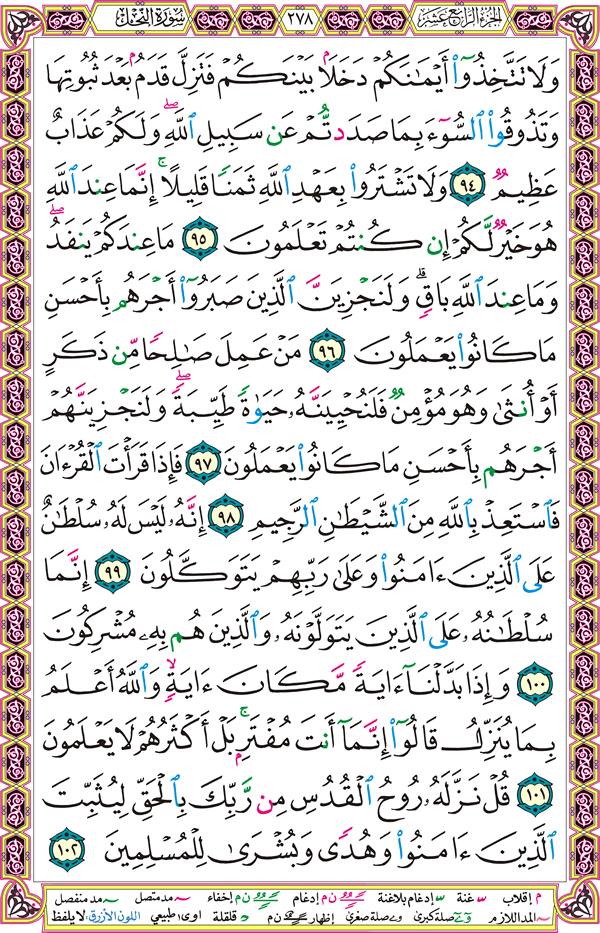 الجزء الرابع عشر
٢٧٨
سورة النحل
وَلَا تَتَّخِذُوٓا۟ أَيْمَـٰنَكُمْ دَخَلًۢا بَيْنَكُمْ فَتَزِلَّ قَدَمٌۢ بَعْدَ ثُبُوتِهَا
وَتَذُوقُوا۟ ٱلسُّوٓءَ بِمَا صَدَدتُّمْ عَن سَبِيلِ ٱللَّهِ ۖ وَلَكُمْ عَذَابٌ
عَظِيمٌ ٩٤ وَلَا تَشْتَرُوا۟ بِعَهْدِ ٱللَّهِ ثَمَنًا قَلِيلًا ۚ إِنَّمَا عِندَ ٱللَّهِ
هُوَ خَيْرٌ لَّكُمْ إِن كُنتُمْ تَعْلَمُونَ ٩٥ مَا عِندَكُمْ يَنفَدُ ۖ
وَمَا عِندَ ٱللَّهِ بَاقٍ ۗ وَلَنَجْزِيَنَّ ٱلَّذِينَ صَبَرُوٓا۟ أَجْرَهُم بِأَحْسَنِ
مَا كَانُوا۟ يَعْمَلُونَ ٩٦ مَنْ عَمِلَ صَـٰلِحًا مِّن ذَكَرٍ
أَوْ أُنثَىٰ وَهُوَ مُؤْمِنٌ فَلَنُحْيِيَنَّهُۥ حَيَوٰةً طَيِّبَةً ۖ وَلَنَجْزِيَنَّهُمْ
أَجْرَهُم بِأَحْسَنِ مَا كَانُوا۟ يَعْمَلُونَ ٩٧ فَإِذَا قَرَأْتَ ٱلْقُرْءَانَ
فَٱسْتَعِذْ بِٱللَّهِ مِنَ ٱلشَّيْطَـٰنِ ٱلرَّجِيمِ ٩٨ إِنَّهُۥ لَيْسَ لَهُۥ سُلْطَـٰنٌ
عَلَى ٱلَّذِينَ ءَامَنُوا۟ وَعَلَىٰ رَبِّهِمْ يَتَوَكَّلُونَ ٩٩ إِنَّمَا
سُلْطَـٰنُهُۥ عَلَى ٱلَّذِينَ يَتَوَلَّوْنَهُۥ وَٱلَّذِينَ هُم بِهِۦ مُشْرِكُونَ
١٠٠ وَإِذَا بَدَّلْنَآ ءَايَةً مَّكَانَ ءَايَةٍ ۙ وَٱللَّهُ أَعْلَمُ
بِمَا يُنَزِّلُ قَالُوٓا۟ إِنَّمَآ أَنتَ مُفْتَرٍۭ ۚ بَلْ أَكْثَرُهُمْ لَا يَعْلَمُونَ
١٠١ قُلْ نَزَّلَهُۥ رُوحُ ٱلْقُدُسِ مِن رَّبِّكَ بِٱلْحَقِّ لِيُثَبِّتَ
ٱلَّذِينَ ءَامَنُوا۟ وَهُدًى وَبُشْرَىٰ لِلْمُسْلِمِينَ ١٠٢
م إقلاب غنة إدغام بلاغنة ن م إدغام ن م إخفاء مد متصل مد منفصل
المد اللازم صلة كبرى صلة صغرى إظهار ن م قلقلة اوى طبيعي اللون الأزرق لا يلفظ